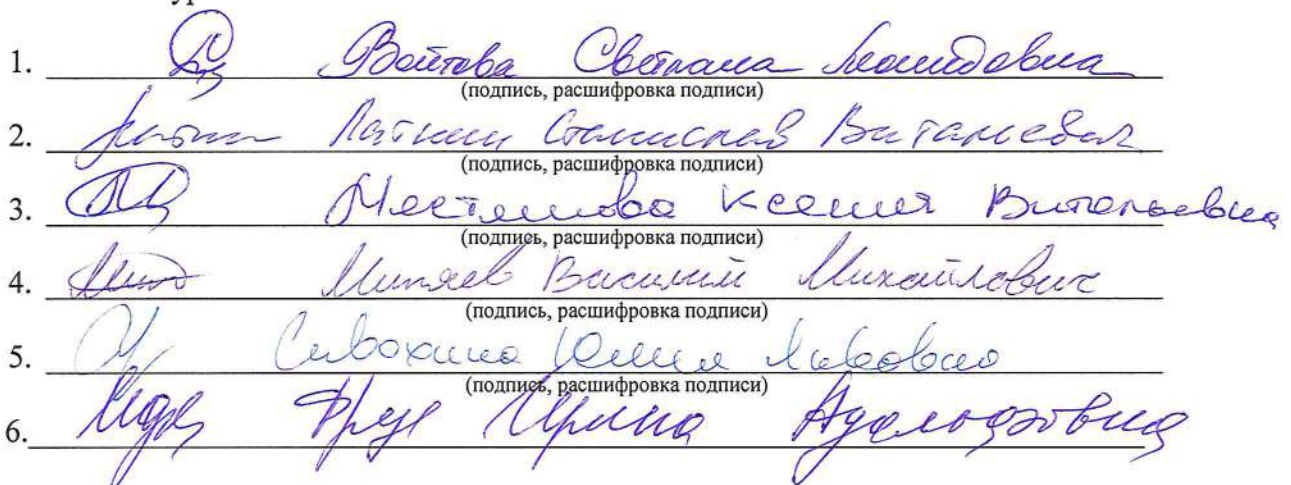 1. Войтова Светлана Леонидовна
(подпись, расшифровка подписи)
2. Латкин Станислав Витальевич
(подпись, расшифровка подписи)
3. Ксения Витальевна
(подпись, расшифровка подписи)
4. Миляев Василий Михайлович
(подпись, расшифровка подписи)
5. Сивохина Юлия Львовна
(подпись, расшифровка подписи)
6. Ирина Адольфовна